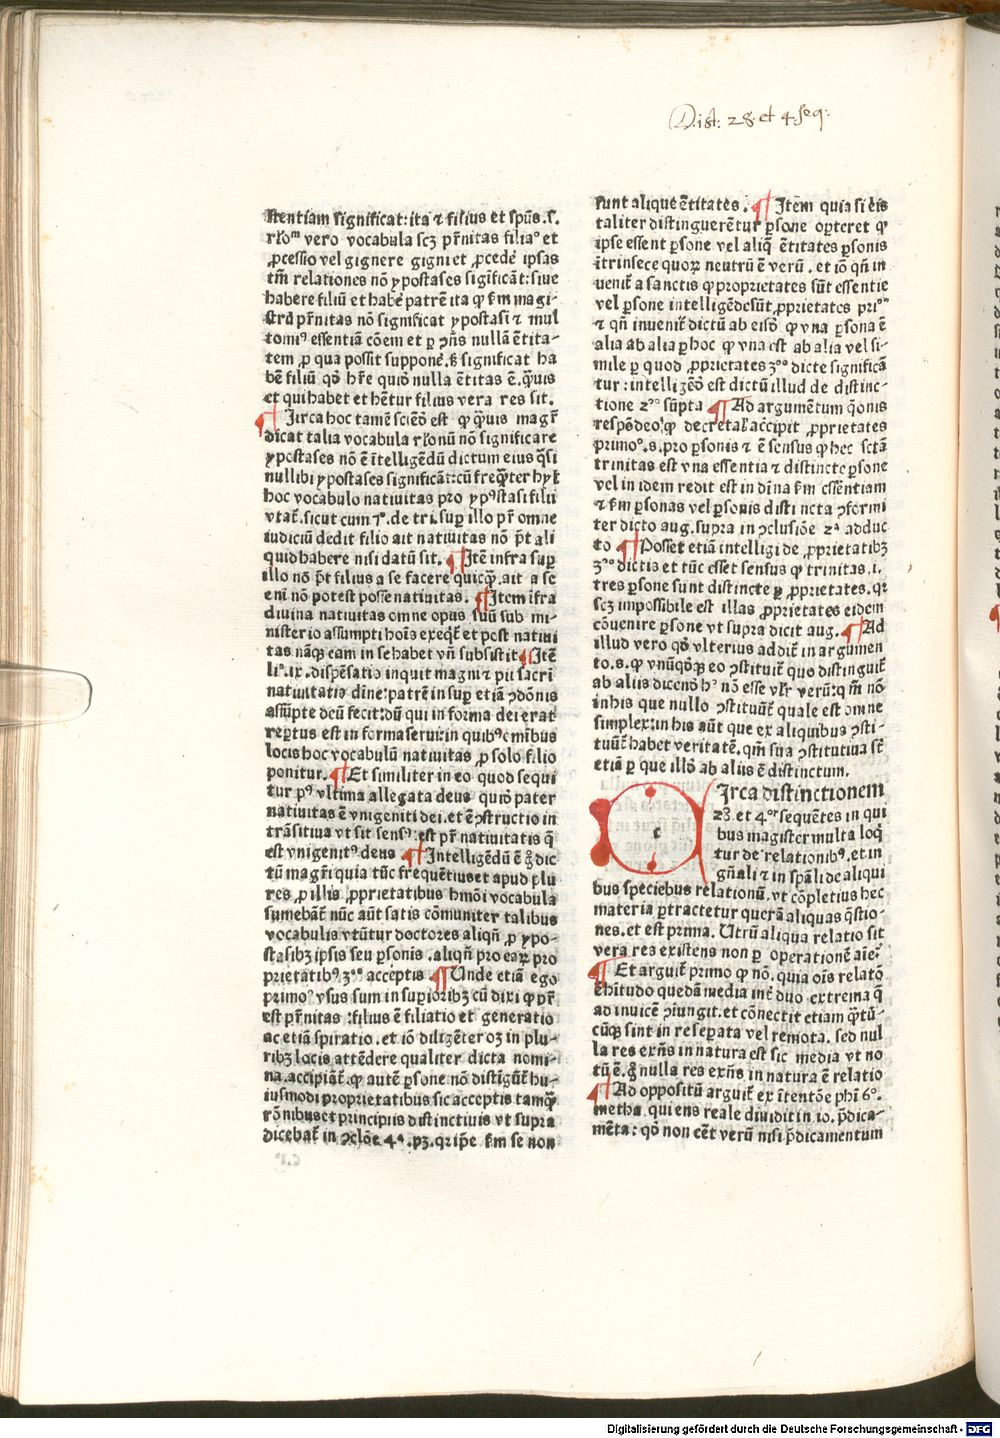 Dist: 28. et 4 seq:
stentiam significat: ita ⁊ filius et spūs. s.
rłoᵐ vero vocabula scꝫ pr̄nitas filiaᵒ et
ꝓcessio vel gignere gigni et ꝓcede᷑ ipsas
tm̄ relationes nō ypostases sigīficāt: siue
habere filiū et habe᷑ patrē ita ꝙ ẜm magi-
strū pr̄nitas nō significat ypostasi ⁊ mul
tomiꝰ essentiā cōem et ꝑ ꝯn̄s nullā ētita-
tem ꝓ qua possit suppone᷑. ẜꝫ significat ha
bē filiū qđ hr̄e quiđ nulla ētitas ē. q̄uis
et qui habet et hētur filius vera res sit.
¶ Circa hoc tamē sciēđ est ꝙ q̄uis magr̄
dicat talia vocabula rłonū nō significare
ypostases nō ē ītelligēdū dictum eius q̄si
nullibi ypostases significāt: cū freq̄ter hył
hoc vocabulo natiuitas pro ypꝰstasi filii
vtat᷑. sicut cum 7ᵒ. de tri. suꝑ illo pr̄ omne
iudiciū dedit filio ait natiuitas nō p̄t ali
quid habere nisi datū sit. ¶ Itē infra suꝑ
illo nō p̄t filius a se facere quicꝙ̄. ait a se
enī nō potest posse natiuitas. ¶ Item īfra
diuina natiuitas omne opus suū sub mi-
nisterio assumpti hoīs exeq̄t᷑ et post natiui
tas nāqꝫ eam in se habet vn̄ subsistit ¶ Itē
liᵒ. ix. dispēsatio inquit magni ⁊ pii sacri
natiuitatis dine: patrē insuꝑ etiā ꝯdōnis
assūpte deū fecit: dū qui in forma dei erat
reꝑtus est in forma serui: in quibꝰc mībus
locis hoc vocabulū natiuitas ꝓ solo filio
ponitur. ¶ Et similiter in eo quod sequi
tur pꝰ vltima allegata deus quiđ pater
natiuitas ē vnigeniti dei. et ē ꝯstructio in
trāsitiua vt sit sensꝰ: est pr̄ natiuitatis q̄
est vnigenitꝰ deus ¶ Intelligēdū ē ḡ dic
tū magr̄i quia tūc frequētius et apud plu
res ꝓ illis ꝓprietatibus hmōi vocabula
sumebāt᷑ nūc aūt satis cōmuniter talibus
vocabulis vtūtur doctores aliqn̄ ꝓ ypo-
stasibꝫ ipsis seu ꝑsonis. aliqn̄ pro eaꝝ pro
prietatibꝰ 3ᵒᵒ acceptis ¶ Unde etiā ego
primoᵒ vsus sum in suꝑioribꝫ cū dixi ꝙ pr̄
est pr̄nitas: filius ē filiatio et generatio
ac etiā spiratio. et iō diligēter oꝫ in plu-
ribꝫ locis attēdere qualiter dicta nomi-
na. accipiāt᷑. ꝙ autē ꝑsone nō distīgūt᷑ hu-
iusmodi proprietatibus sic acceptis tamꝙ̄
rōnibus et principiis distinctiuis vt supra
dicebat᷑ in ꝯclōe 4ᵃ. pꝫ. qr ip̄e ẜm se non
sunt alique ētitates. ¶ Item quia si eis
taliter distinguerētur ꝑsone oꝑteret ꝙ
ipse essent ꝑsone vel aliq̄ ētitates ꝑsonis
ītrinsece quoꝝ neutrū ē verū. et iō qn̄ in
uenit᷑ a sanctis ꝙ proprietates sūt essentie
vel ꝑsone intelligēde sūt ꝓprietates priᵒᵐ
⁊ qn̄ inuenit᷑ dictū ab eisđ ꝙ vna ꝑsona ē
alia ab alia ꝑ hoc ꝙ vna est ab alia vel si-
mile ꝑ quod ꝓprietates 3ᵒᵒ dicte significā
tur: intelligēđ est dictū illud de distinc-
tione 2ᵒᵒ sūpta ¶ Ad argumētum q̄onis
respōdeo ꝙ decretał accipit ꝓprietates
primoᵒ. s. pro ꝑsonis ⁊ ē sensus ꝙ hec sctā
trinitas est vna essentia ⁊ distincte ꝑsone
vel in idem redit est in dīna ẜm essētiam
⁊ ẜm personas vel ꝑsonis distincta ꝯformi
ter dicto aug. supra in ꝯclusiōe 2ᵃ adduc
to ¶ Posset etiā intelligi de ꝓprietatibꝫ
3ᵒᵒ dictis et tūc esset sensus ꝙ trinitas. i.
tres ꝑsone sunt distincte ꝑ ꝓprietates. qr
scꝫ impossibile est illas ꝓprietates eidem
cōuenire ꝑsone vt supra dicit aug. ¶ Ad
illud vero qđ vlterius addit᷑ in argumen
to. s. ꝙ vnūqđqꝫ eo ꝯstituit᷑ quo distinguit᷑
ab aliis dicenđ hᵒ nō esse vłr verū: qm̄ nō
in his que nullo ꝯstituūt᷑ quale est omne
simplex: in his aūt que ex aliquibus ꝯsti-
tuūt᷑ habet veritatē. qm̄ sua ꝯstitutiua st̄
etiā ꝑ que illđ ab aliis ē distinctum.
c
Irca distinctionem
28. et 4ᵒʳ sequētes in qui
bus magister multa loq̄
tur de relationibꝰ. et in
gn̄ali ⁊ in spāli de aliqui
bus speciebus relationū. vt cōpletius hec
materia ꝑtractetur querā aliquas q̄stio-
nes. et est prima. Utrū aliqua relatio sit
vera res existens non ꝑ operationē aīe.
¶ Et arguit᷑ primo ꝙ nō. quia oīs relatō
ē hītudo quedā media int᷑ duo extrema q̄
ad inuicē ꝯiungit. et cōnectit etiam q̄tū-
cūqꝫ sint in re seꝑata vel remota. sed nul
la res exn̄s in natura est sic media vt no
tū ē. ḡ nulla res exn̄s in natura ē relatio
¶ Ad oppositū arguit᷑ ex ītentōe ph̄i 6ᵒ.
metha. qui ens reale diuidit in 10. p̄dica-
mēta: qđ non eēt verū nisi p̄dicamentum
Digitalisierung gefördert durch die Deutsche Forschungsgemeinschaft - DFG